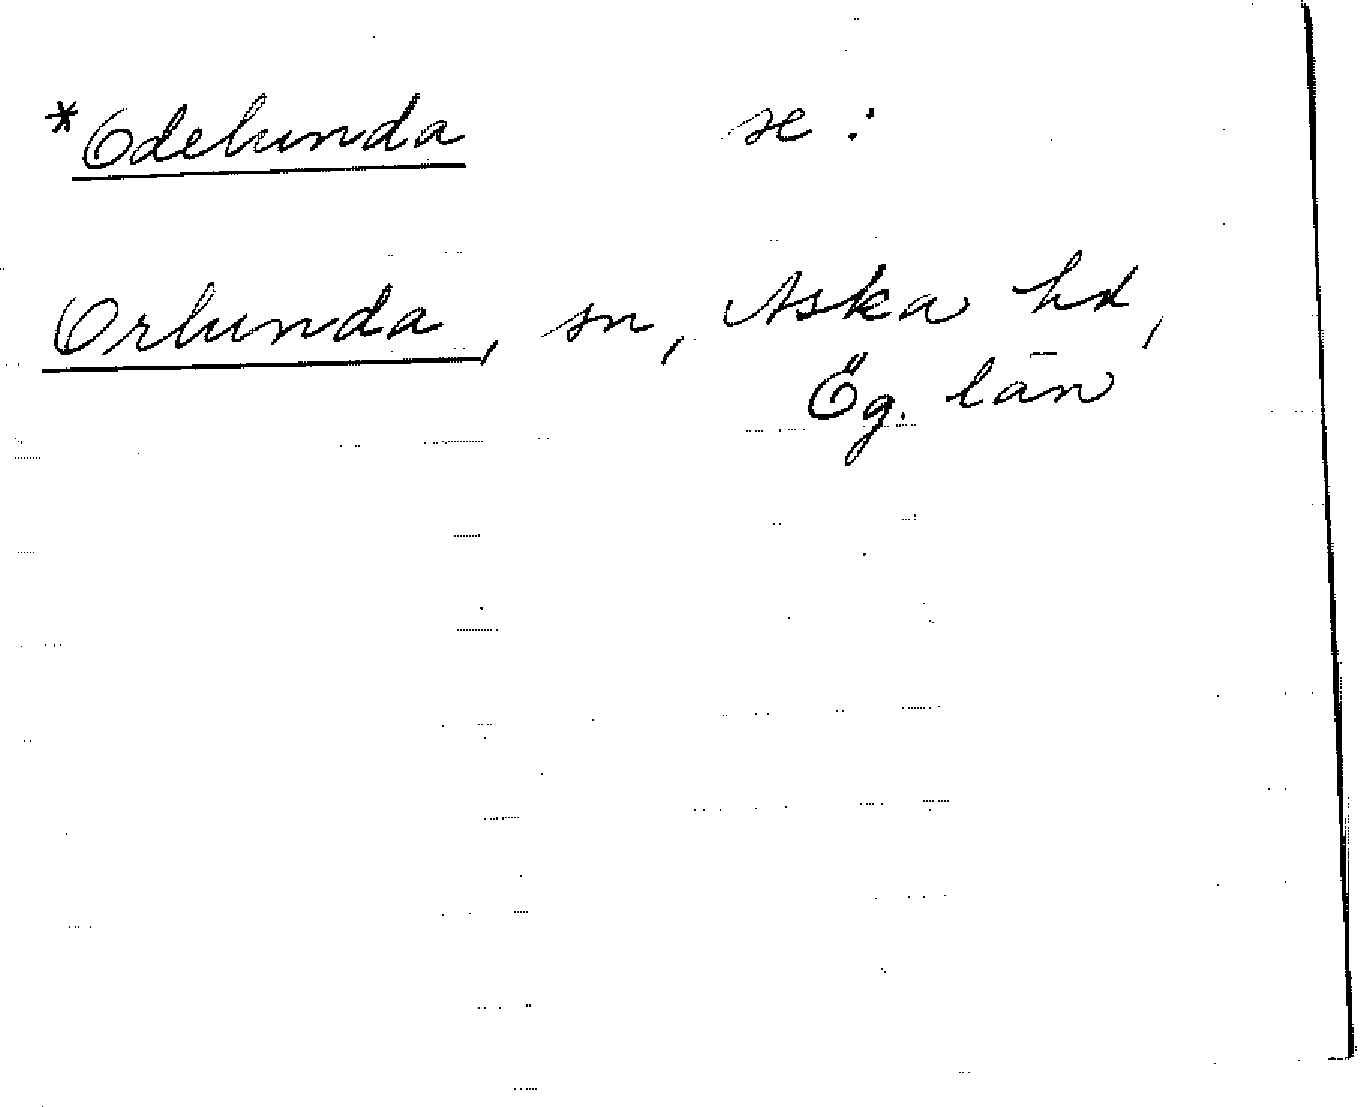 *Odelunda se:
Orlunda, sn, Aska hd,
Ög. län